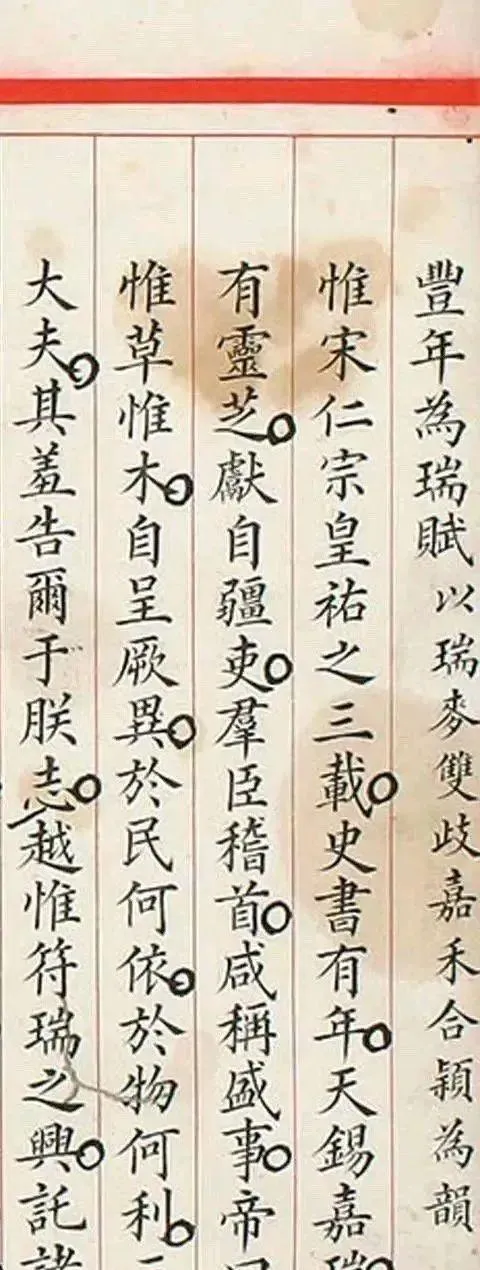 豐年為瑞賦以瑞麥雙歧嘉禾合穎為韻
惟宋仁宗皇祐之三載史書有年天錫嘉瑞
有靈芝獻自疆吏羣臣稽首咸稱盛事帝曰
惟草惟木自呈厥異於民何依於物何利
大夫其羞告爾于朕志越惟符瑞之興託諸